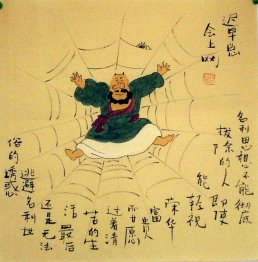 迟早总
会上网
名利思想不能彻底
拔除的人即使
能轻视
荣华
富贵
甘愿
过着清
苦的生
活最后
还是无法
逃避名利世
俗的诱惑